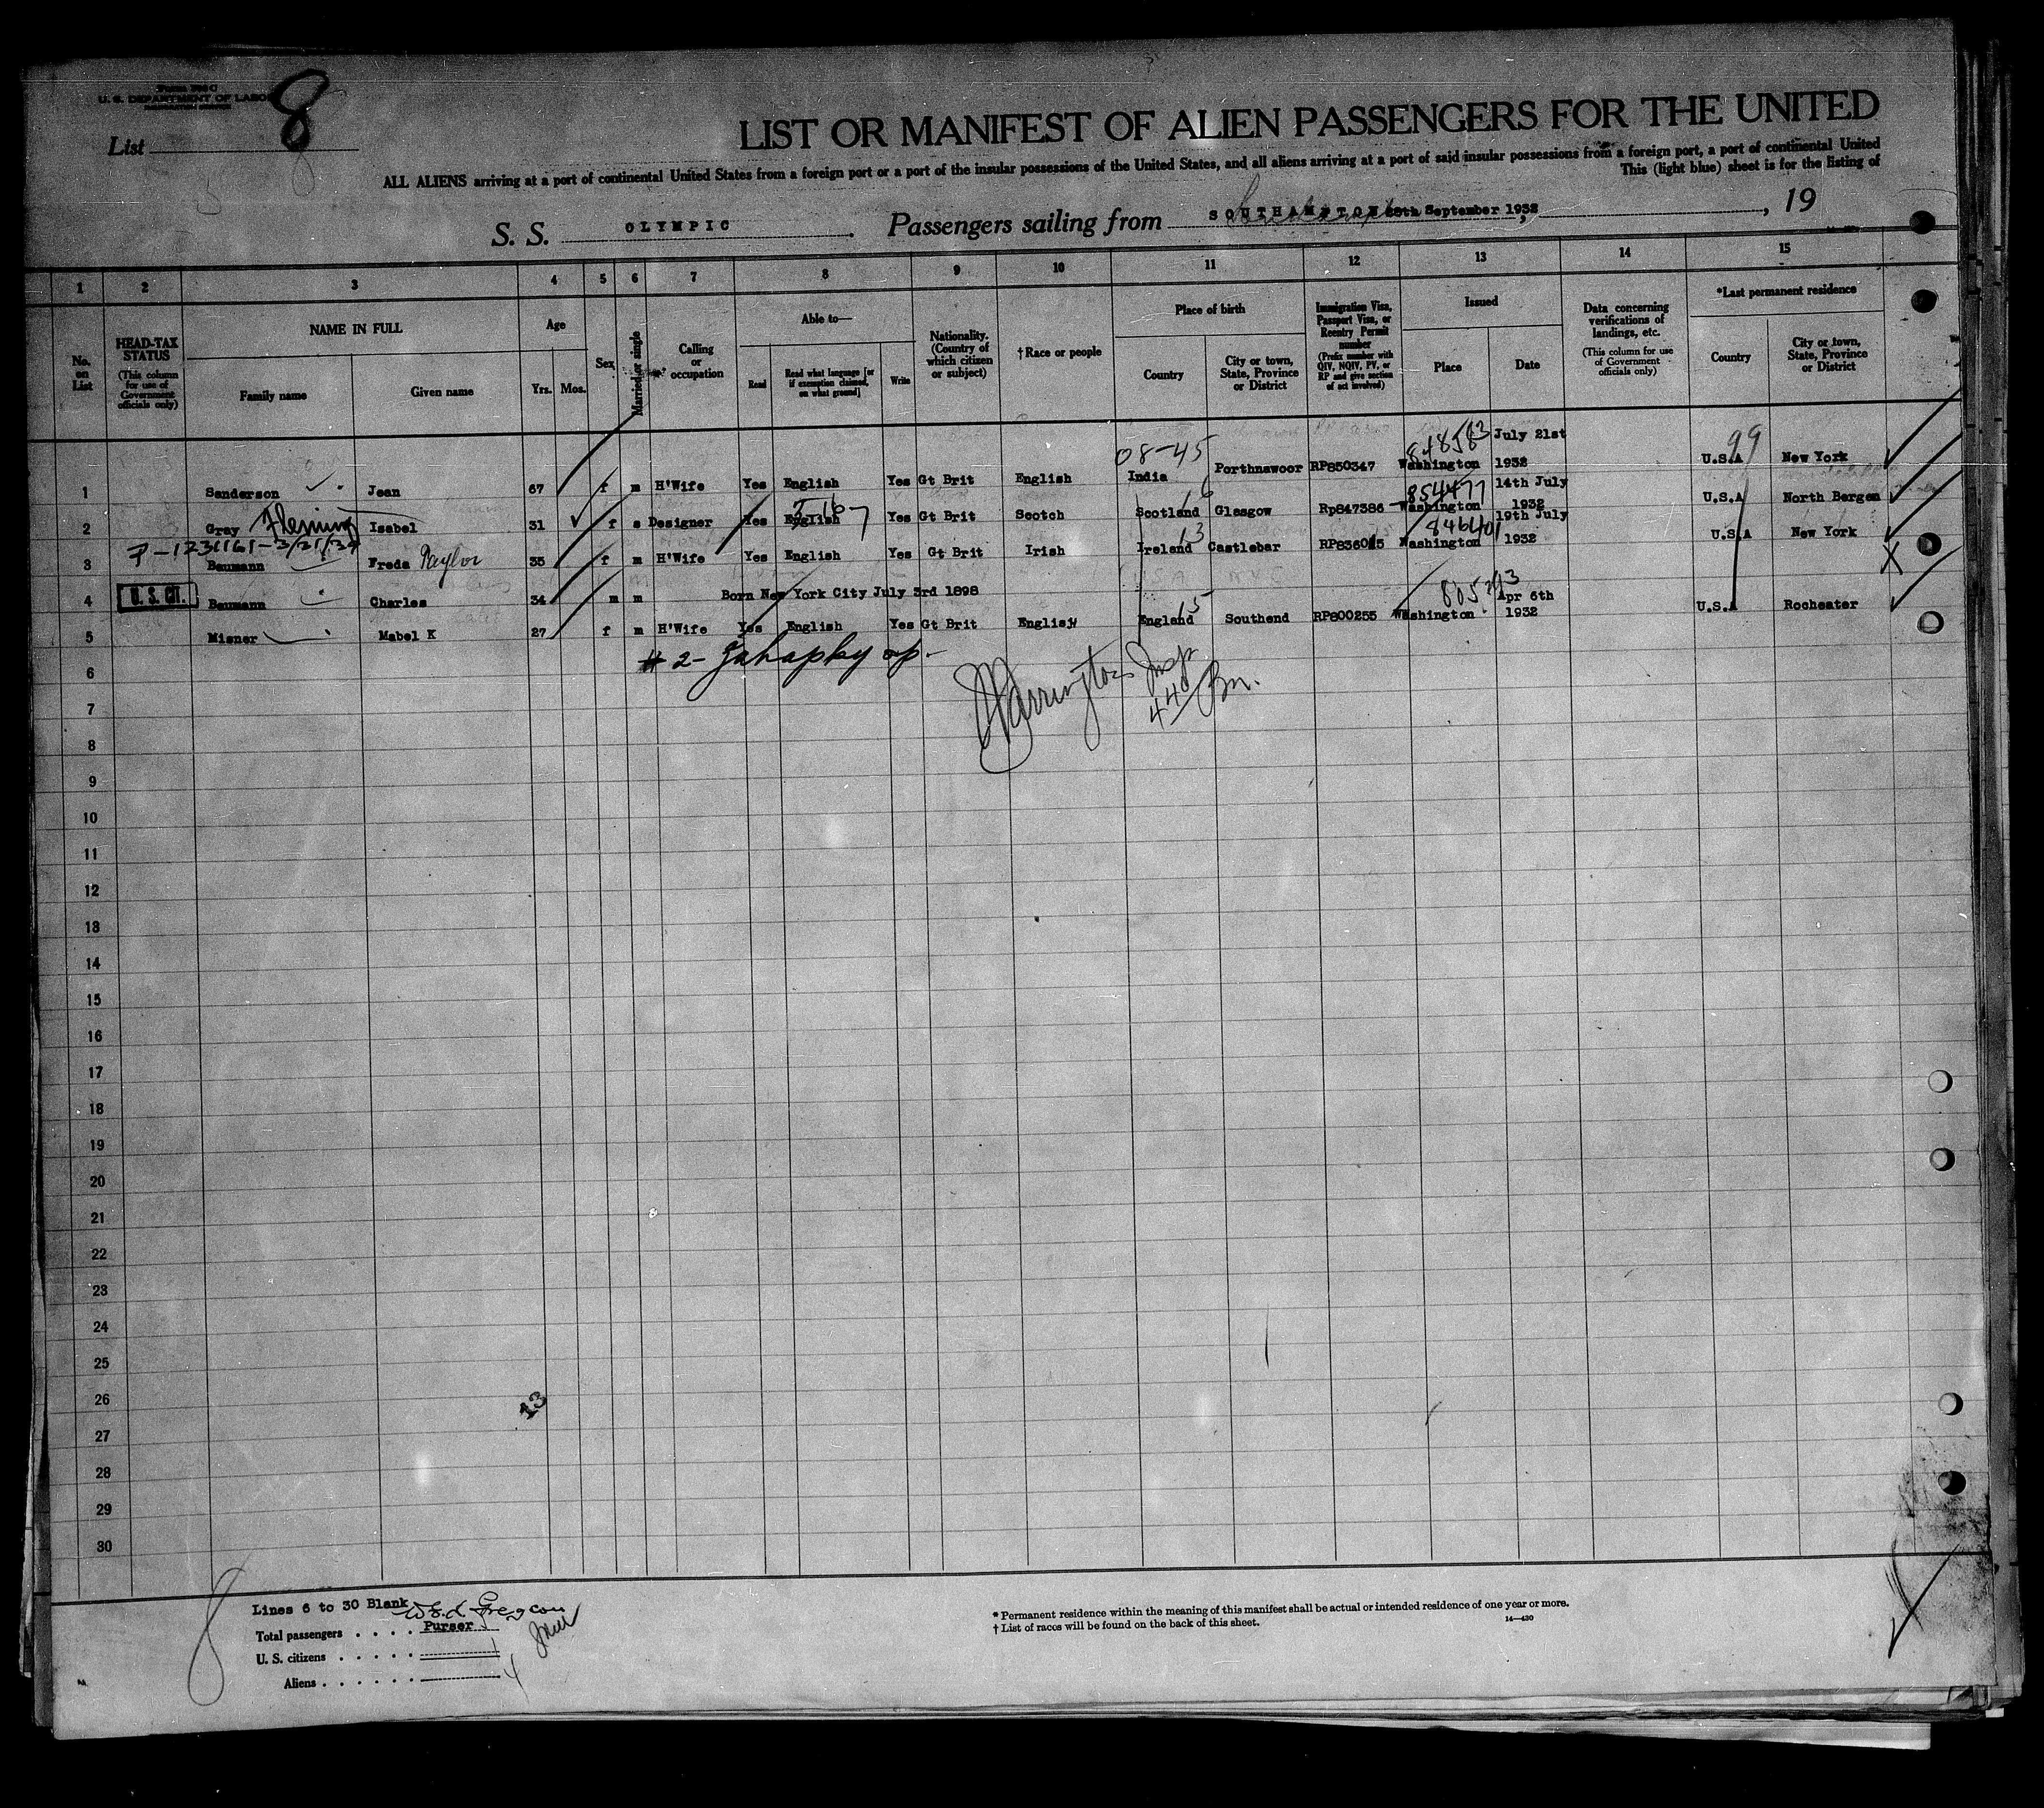 Form 500 C
U. S. DEPARTMENT OF LABOR
List 8
LIST OR MANIFEST OF ALIEN PASSENGERS FOR THE UNITED
ALL ALIENS arriving at a port of continental United States from a foreign port or a port of the insular possessions of the United States, and all aliens arriving at a port of said insular possessions from a foreign port, a port of continental United
This (light blue) sheet is for the listing of
S. S. OLYMPIC. Passengers sailing from SOUTHAMPTON September 1932, 19
1 2 3 4 5 6 7 8 9 10 11 12 13 14 15
No. on List
HEAD-TAX STATUS (This column for use of Government officials only)
NAME IN FULL Family name Given name
Age Yrs. Mos.
Sex
Married or single
Calling or occupation
Able to— Read Read what language [or if exemption claimed, on what ground] Write
Nationality. (Country of which citizen or subject)
†Race or people
Place of birth Country City or town, State, Province or District
Immigration Visa, Passport Visa, or Reentry Permit number (Prefix number with QIV, NQIV, PV, or RP and give section of act involved)
Issued Place Date
Data concerning verifications of landings, etc. (This column for use of Government officials only)
*Last permanent residence Country City or town, State, Province or District
08-45 848583 July 21st 99
1 Sanderson Jean 67 f m H'Wife Yes English Yes Gt Brit English India Porthnawoor RP850347 Washington 1932 U.S.A New York
16 854477 14th July
2 Gray Fleming Isabel 31 f s Designer Yes English Yes Gt Brit Scotch Scotland Glasgow Rp847386 Washington 1932 U.S.A North Bergen
13 846401 19th July
3 Baumann Freda Naylor 35 f m H'Wife Yes English Yes Gt Brit Irish Ireland Castlebar Washington 1932 U.S.A New York X
4 U. S. CIT. Baumann Charles 34 m m Born New York City July 3rd 1898
15 Apr 6th
5 Misner Mabel K 27 f m H'Wife Yes English Yes Gt Brit English England Southend RP800255 Washington 1932 U.S.A Rochester
6 # 2-
7
8
9
10
11
12
13
14
15
16
17
18
19
20
21
22
23
24
25
26 13
27
28
29
30
8
Lines 6 to 30 Blank
Purser
Total passengers . . . .
U. S. citizens . . . . . 1
Aliens . . . . . . 4
* Permanent residence within the meaning of this manifest shall be actual or intended residence of one year or more.
† List of races will be found on the back of this sheet.
14—430